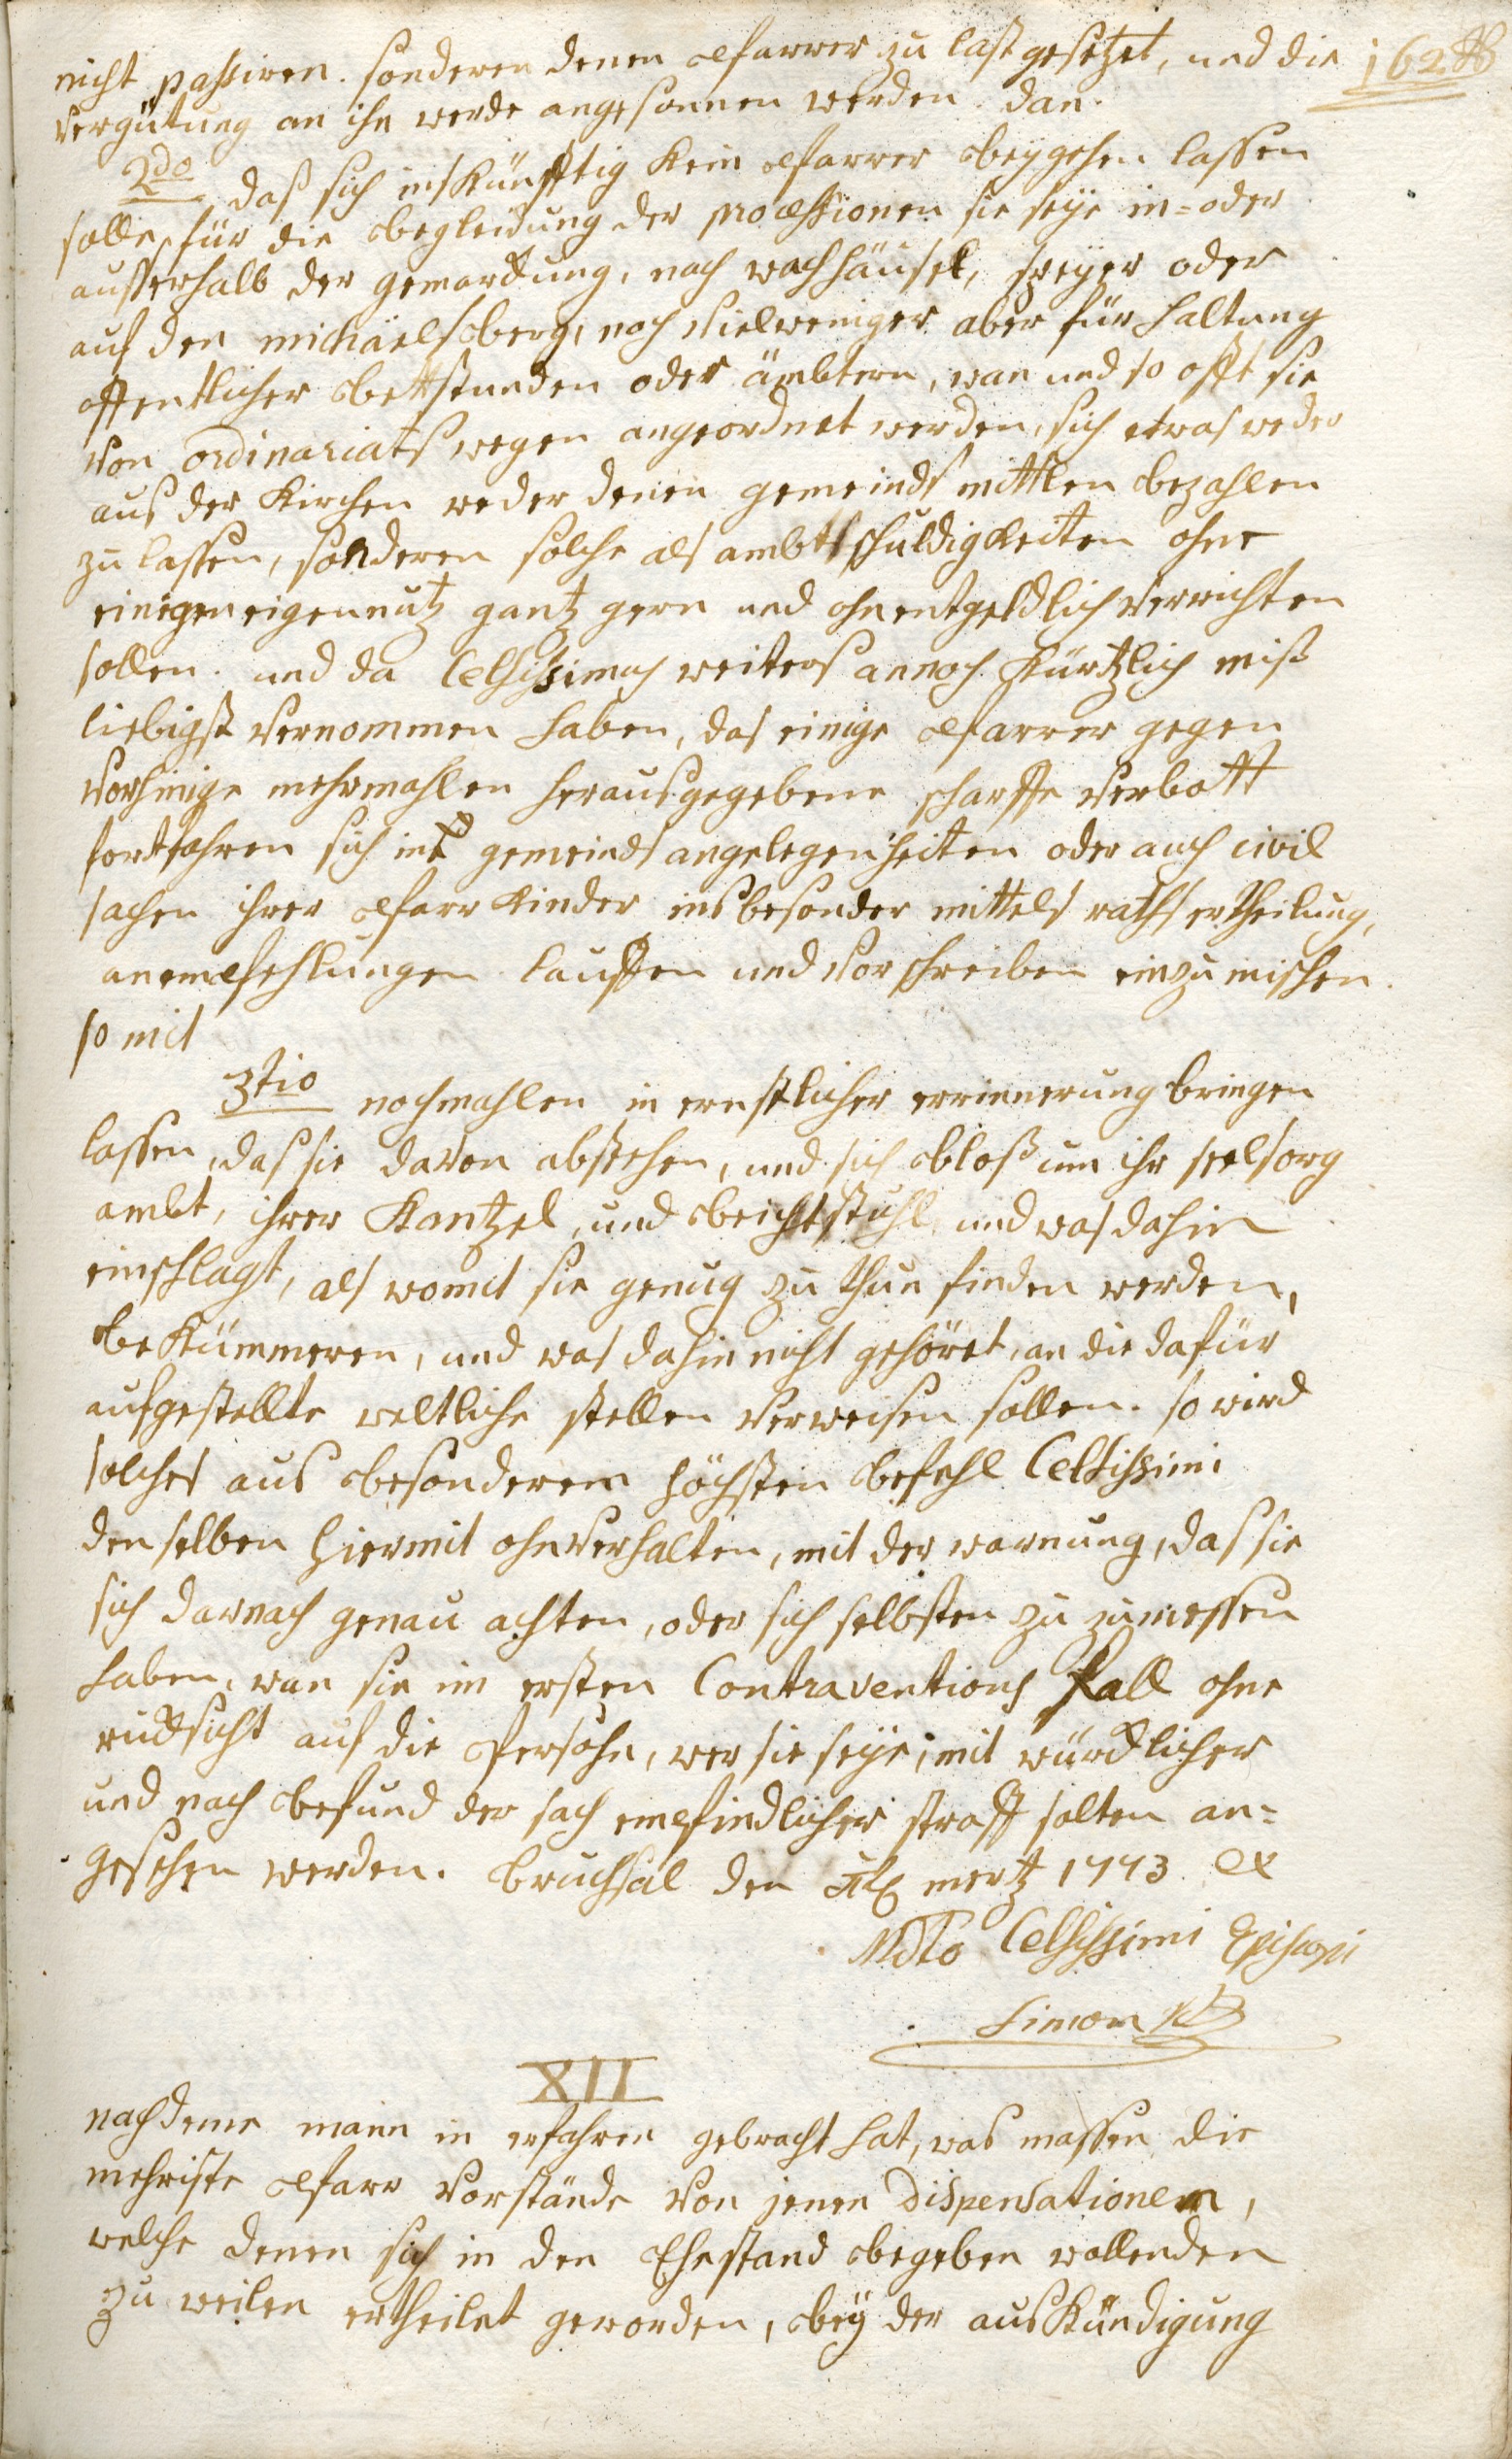 162
nicht passiren. sonderen denen pfarrer zu last gesetzet, und die
vergütung an ihn werde angesonnen werden. dan.
2do daß sich ins künfftig kein pfarrer beygehen lassen
solle, für die begleidung der processionen sie seye in- oder
ausserhalb der gemarckung, nach waghäusel, speyer oder
auf den michäelsberg, noch vielweniger aber für haltung
offentlicher bettstunden oder ämbteren, wan und so offt sie
von ordinariats wegen angeordnet werden, sich etwas weder
aus der kirchen weder denen gemeinds mittlen bezahlen
zu lassen, sonderen solche als ambtsschuldigkeiten ohne
einigen eigennutz gantz gern und ohnentgeldlich verrichten
sollen. und da Celsissimus weiters annoch kürtzlich miß
liebigst vernommen haben, das einige pfarrer gegen
vorhinige mehrmahlen herausgegebene scharffe verbott
fortfahren sich in gemeinds angelegenheiten oder auch civil
sachen ihrer pfarr kinder insbesonder mittels raths ertheilung,
anempfehlungen lauffen und vorschreiben einzumischen.
so mit
3tio nochmahlen in ernstlicher errinnerung bringen
lassen, das sie davon abstehen, und sich bloß um ihr seelsorg
ambt, ihrer kantzel, und beichtstuhl und was dahin
einschlagt, als womit sie genug zu thun finden werden,
bekümmeren, und was dahin nicht gehöret, an die dafür
aufgestellte weltliche stellen verweisen sollen. so wird
solches aus besonderem höchsten befehl Celsissimi
denselben hiermit ohnverhalten, mit der warnung, das sie
sich darnach genau achten, oder sich selbsten zu zumessen
haben, wan sie im ersten Contraventions fall ohne
rücksicht auf die persohn, wer sie seye, mit würcklicher
und nach befund der sach empfindlicher straff solten an-
gesehen werden. bruchsal den mertz 1773. ex
Mdto Celsissimi Episcopi
Simon
XII
nachdeme mann in erfahren gebracht hat, was massen die
mehriste pfarr vorstände von jenen dispensationen,
welche denen sich in den Ehestand begeben wollenden
zu weilen ertheilet geworden, bey der auskündigung